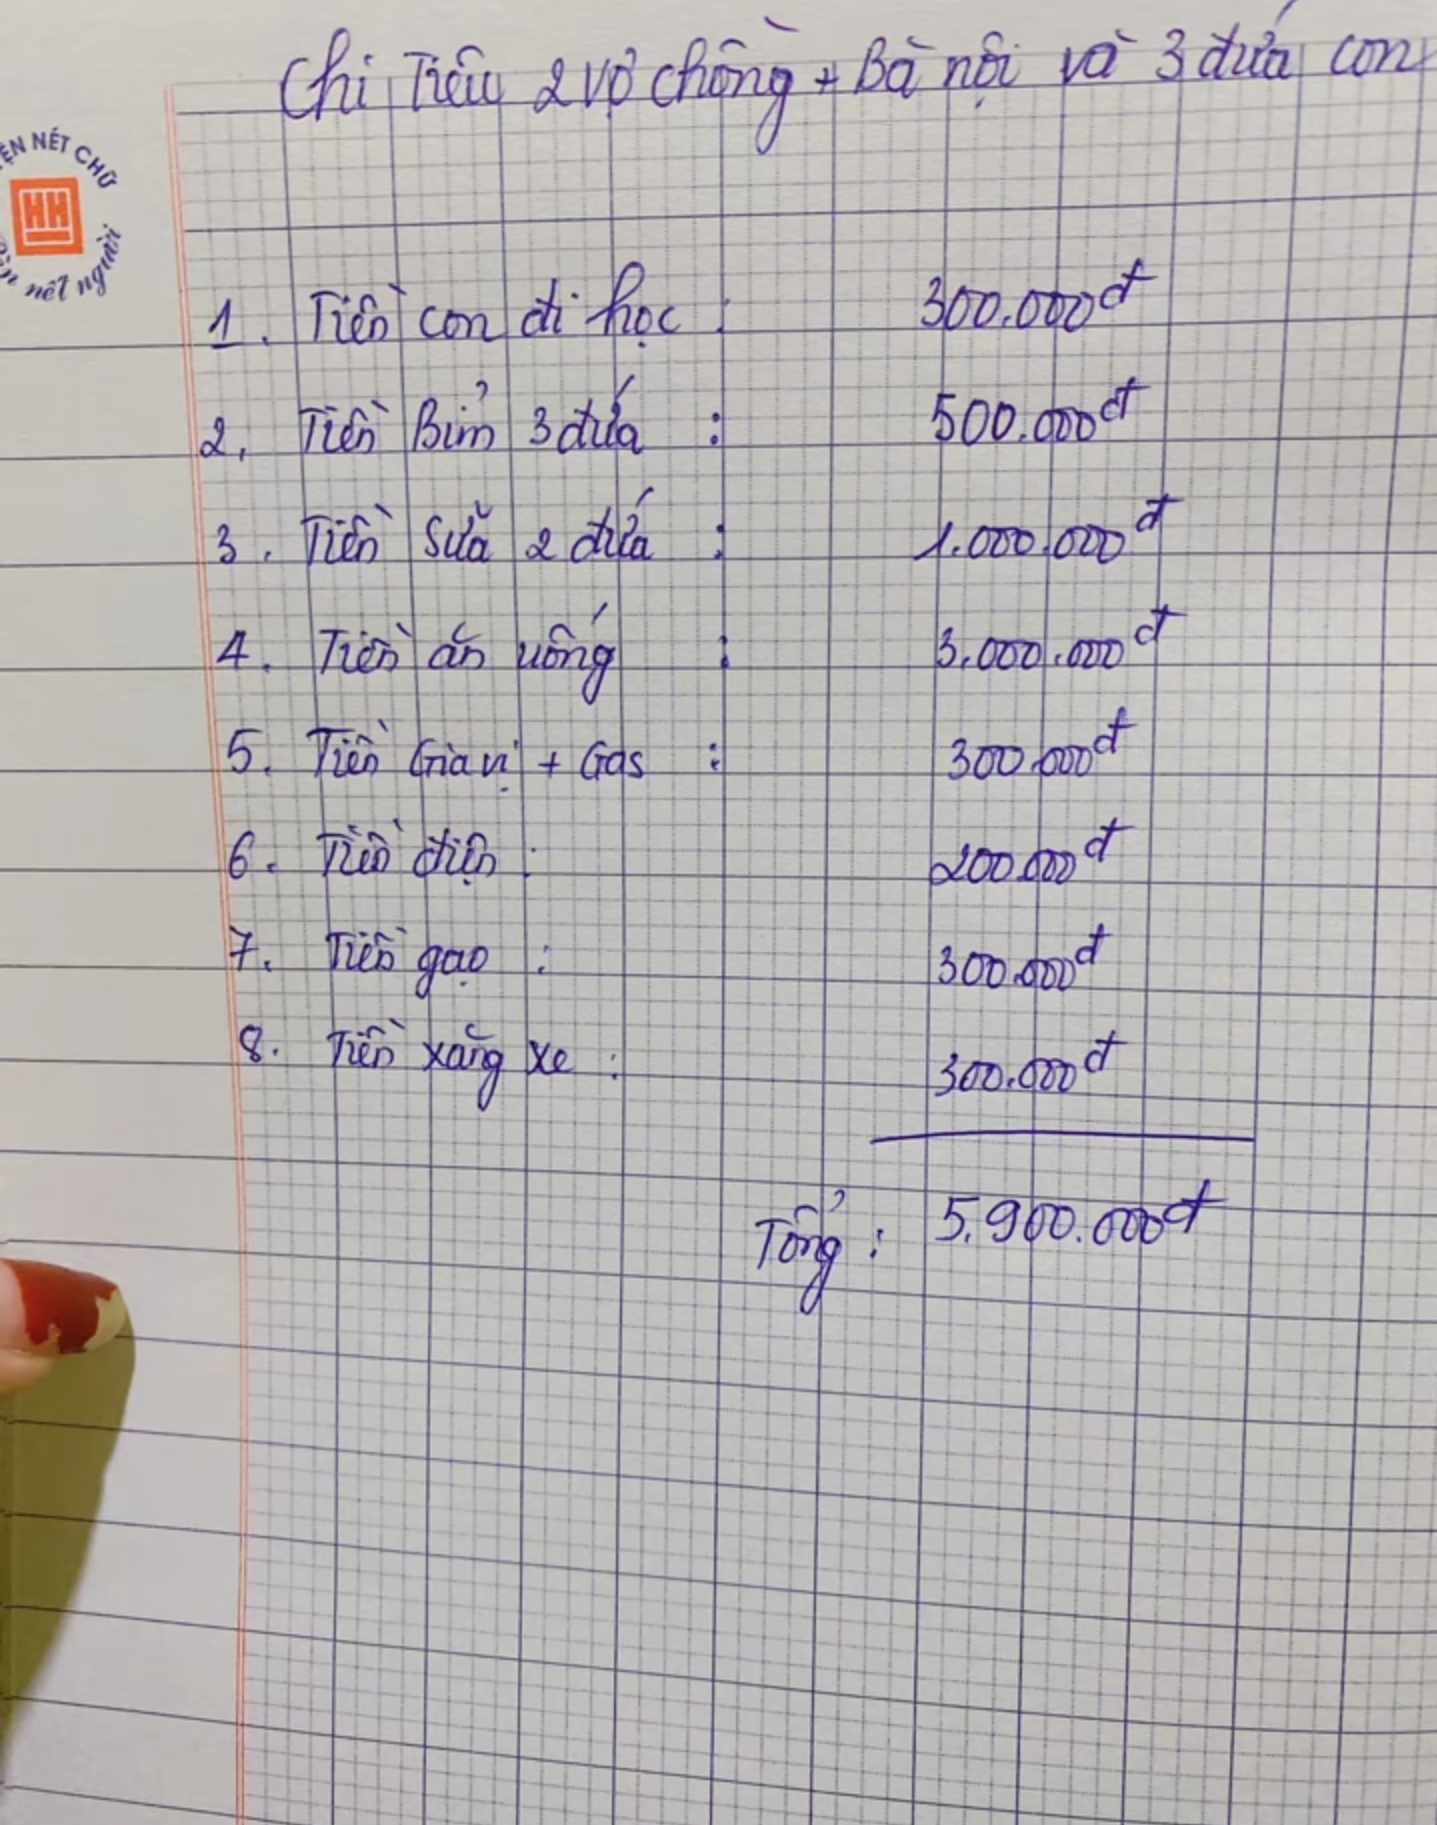 Chi Tiêu 2 vợ chồng + Bà nội và 3 đứa con
ỆN NÉT CHỮ
HH
nết người
1. Tiền con đi học : 300.000đ
2. Tiền Bỉm 3 đứa : 500.000đ
3. Tiền Sữa 2 đứa : 1.000.000đ
4. Tiền ăn uống : 3.000.000đ
5. Tiền Gia vị + Gas : 300.000đ
6. Tiền điện : 200.000đ
7. Tiền gạo : 300.000đ
8. Tiền xăng xe : 300.000đ
Tổng : 5.900.000đ